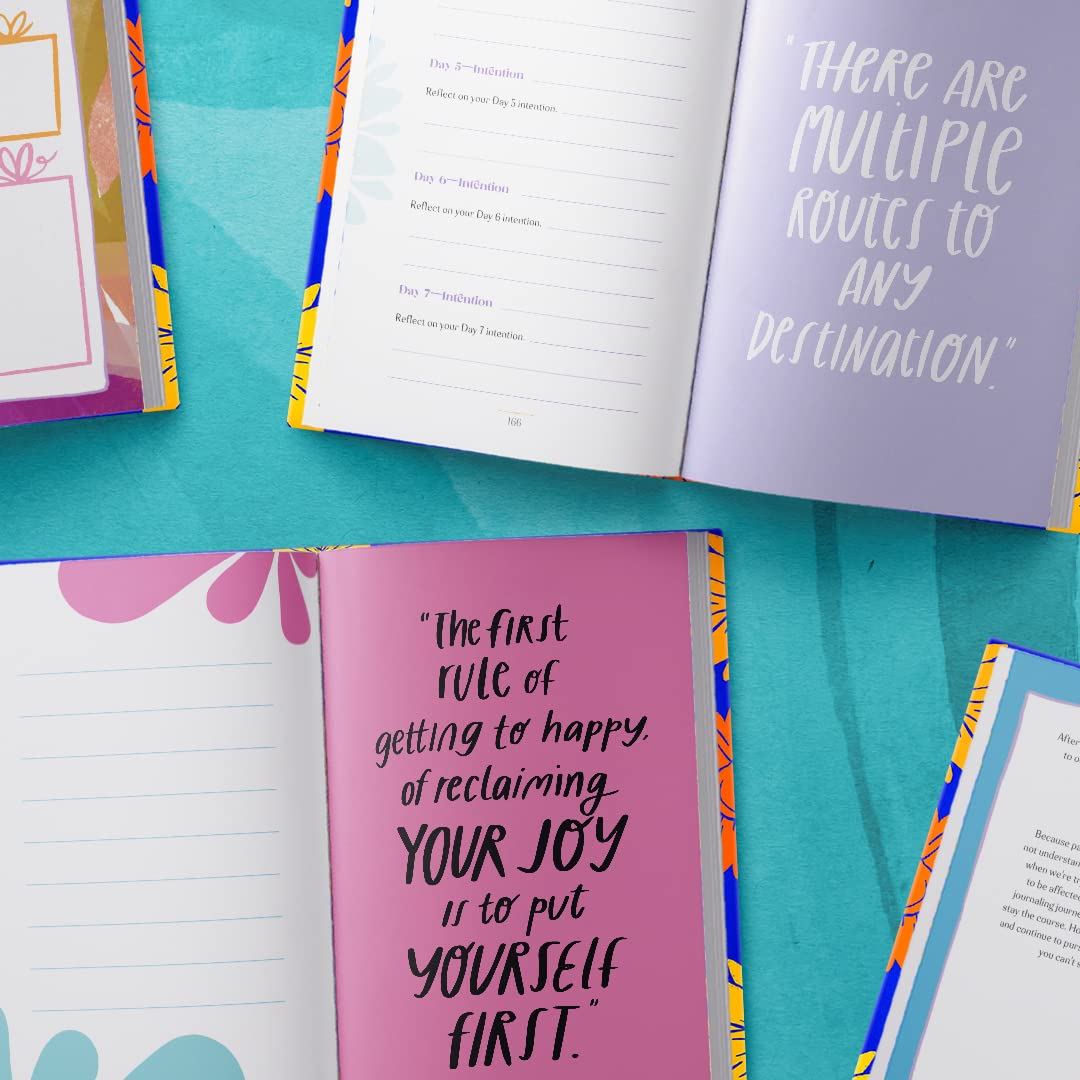 Day 5—Intention
Reflect on your Day 5 intention.
Day 6—Intention
Reflect on your Day 6 intention.
Day 7—Intention
Reflect on your Day 7 intention.
166
"THERE ARE
MULTIPLE
ROUTES TO
ANY
DESTINATION."
"The first
rule of
getting to happy,
of reclaiming
YOUR JOY
is to put
YOURSELF
FIRST."
After
to o
Because pa
not understan
when we're tr
to be affected
journaling journe
stay the course. Ho
and continue to purs
you can't s